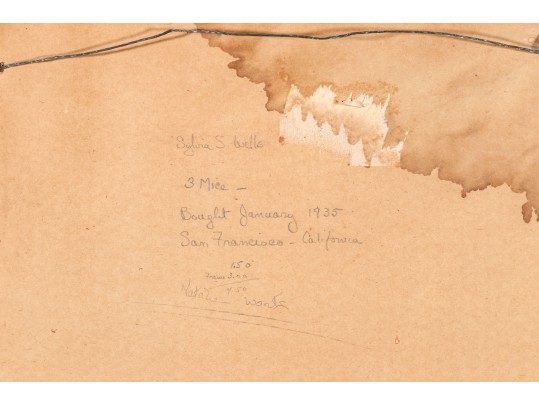 Sylvia S. Wells
3 Mice -
Bought January 1935
San Francisco - California
150
wants